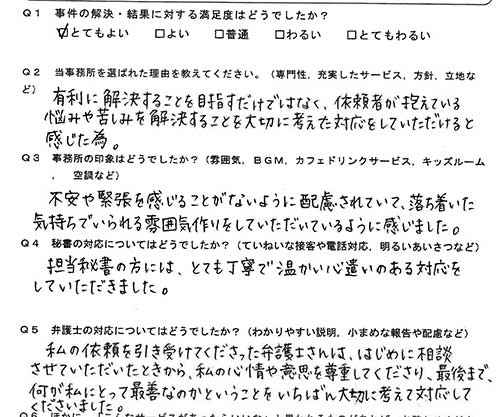 Q1 事件の解決・結果に対する満足度はどうでしたか?
☑とてもよい □よい □普通 □わるい □とてもわるい
Q2 当事務所を選ばれた理由を教えてください。(専門性,充実したサービス,方針,立地な
ど)
有利に解決することを目指すだけではなく、依頼者が抱えている
悩みや苦しみを解決することを大切に考えた対応をしていただけると
感じた為。
Q3 事務所の印象はどうでしたか?(雰囲気,BGM,カフェドリンクサービス,キッズルーム
,空調など)
不安や緊張を感じることがないように配慮されていて、落ち着いた
気持ちでいられる雰囲気作りをしていただいているように感じました。
Q4 秘書の対応についてはどうでしたか?(ていねいな接客や電話対応,明るいあいさつなど)
担当秘書の方には、とても丁寧で温かい心遣いのある対応を
していただきました。
Q5 弁護士の対応についてはどうでしたか?(わかりやすい説明,小まめな報告や配慮など)
私の依頼を引き受けてくださった弁護士さんは、はじめに相談
させていただいたときから、私の心情や意思を尊重してくださり、最後まで、
何が私にとって最善なのかということをいちばん大切に考えて対応して
くださいました。